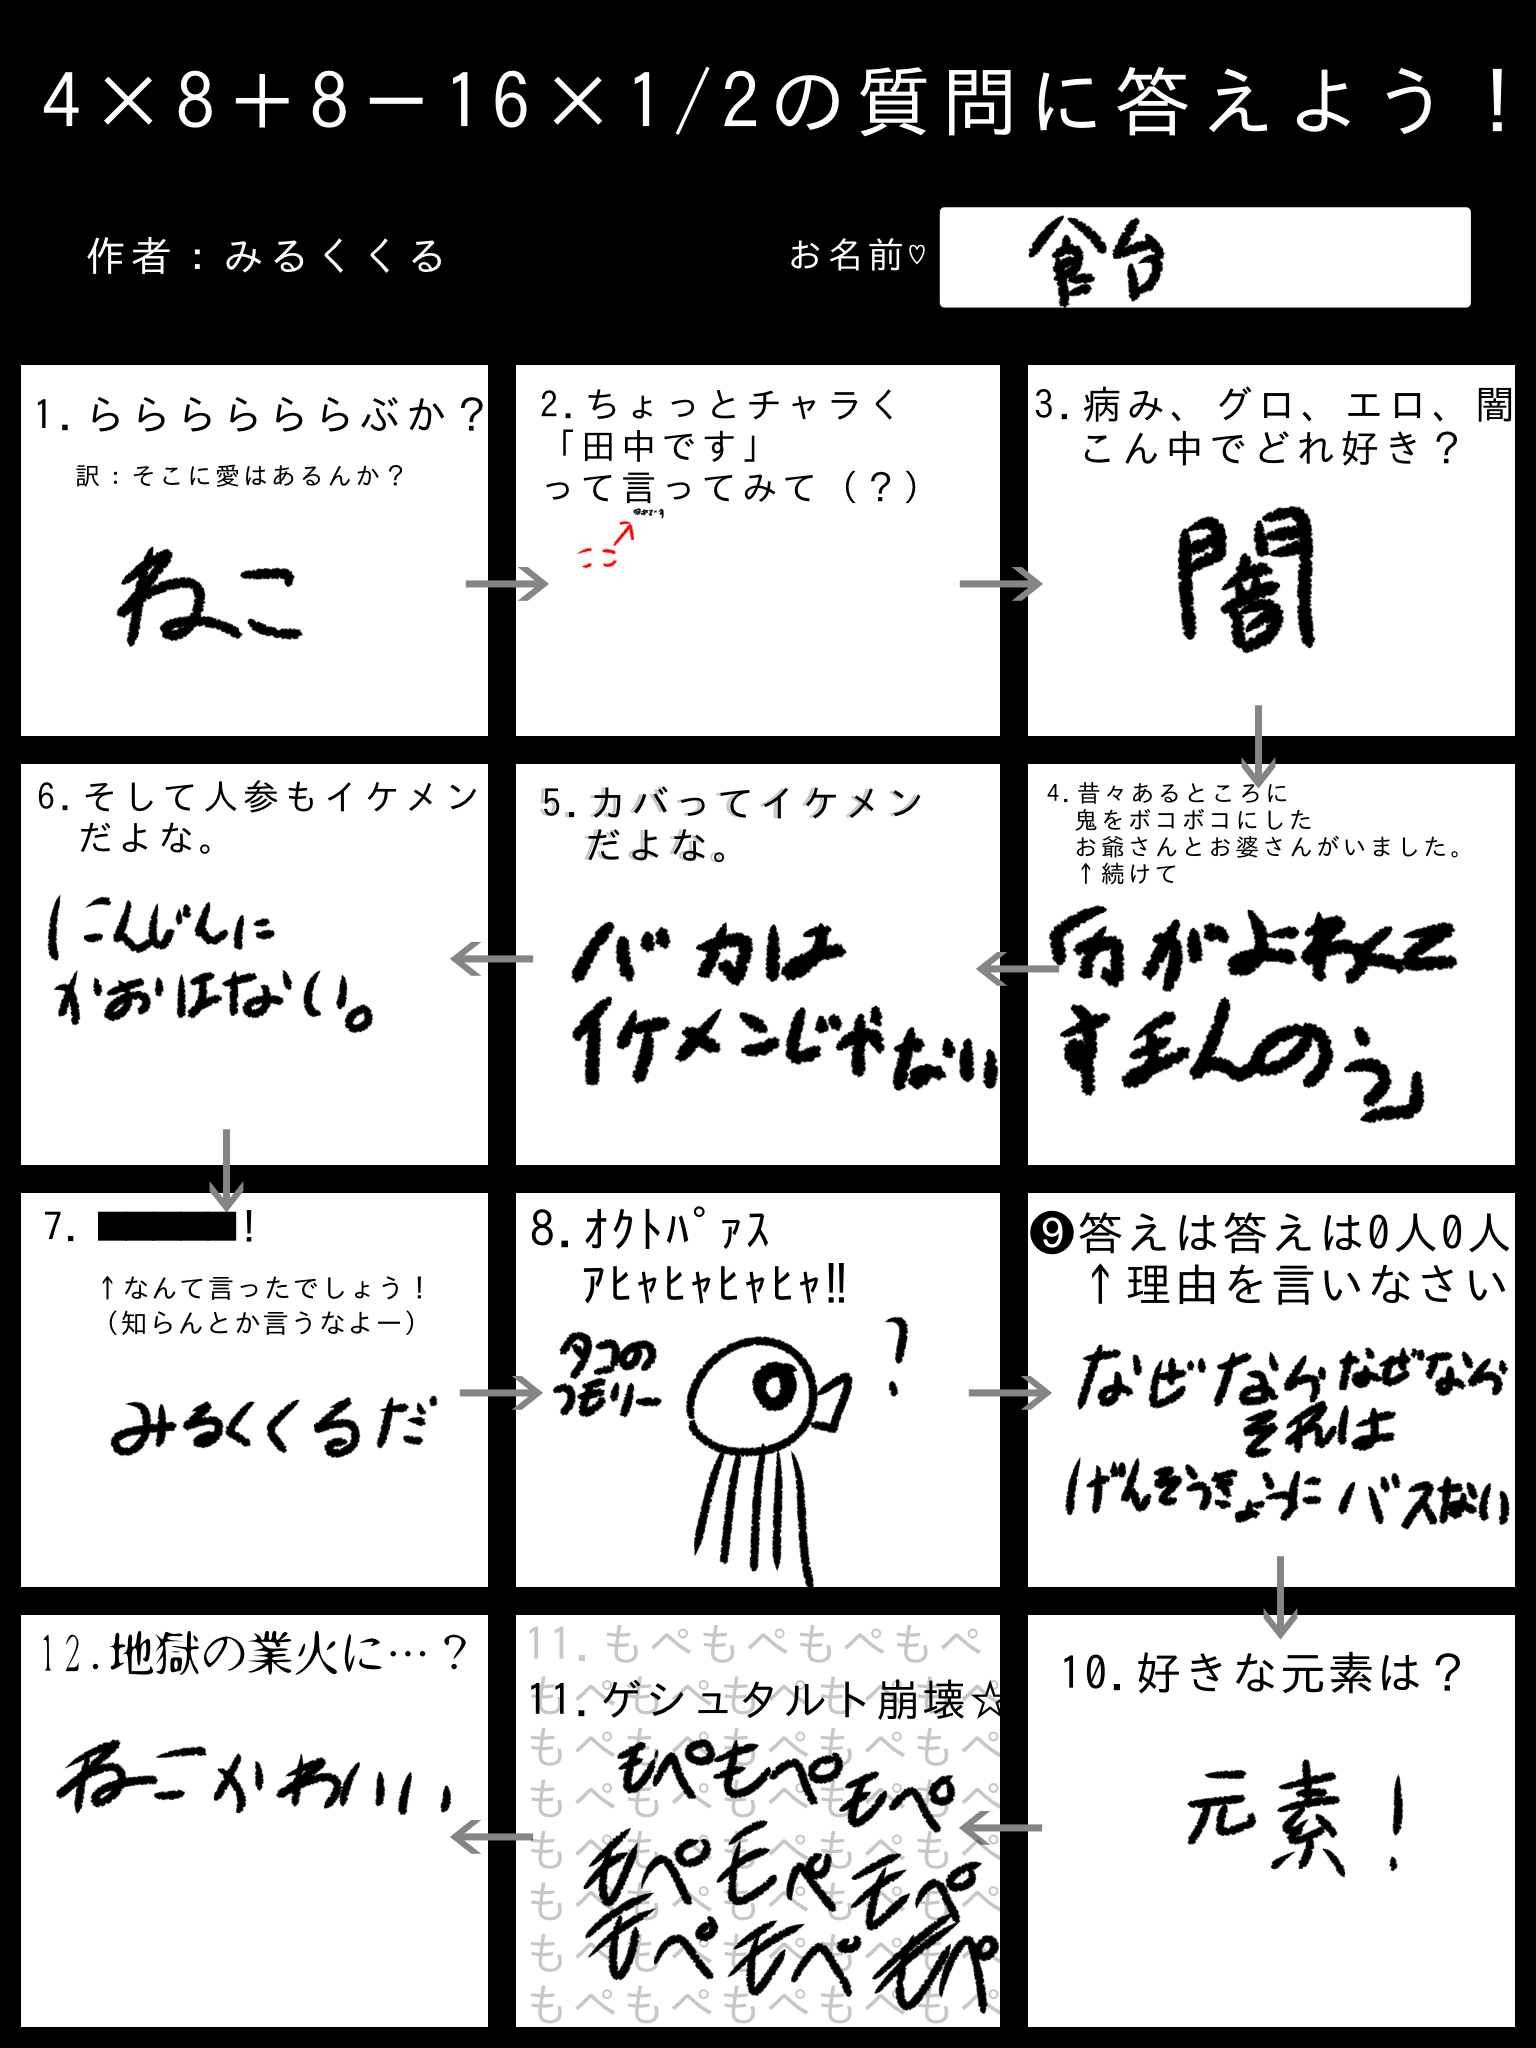 4×8+8-16×1/2の質問に答えよう!
作者:みるくくる
お名前♡
飴
1.ららららららぶか?
訳:そこに愛はあるんか?
ねこ
2.ちょっとチャラく
「田中です」
って言ってみて(?)
ここ
3.病み、グロ、エロ、闇
こん中でどれ好き?
闇
4.昔々あるところに
鬼をボコボコにした
お爺さんとお婆さんがいました。
↑続けて
5.カバってイケメン
だよな。
バカは
イケメンじゃない
6.そして人参もイケメン
だよな。
にんじんに
かおはない。
7. !
↑なんて言ったでしょう!
(知らんとか言うなよー)
みるくくるだ
8.オクトパァス
アヒャヒャヒャヒャ!!
タコの
つもりー
?
❾答えは答えは0人0人
↑理由を言いなさい
なぜなら なぜなら
それは
げんそうきょうに バスない
10.好きな元素は?
元素!
11.もぺもぺもぺもぺ
11.ゲシュタルト崩壊☆
もぺもぺもぺもぺもぺ
もぺもぺもぺもぺもぺ
もぺもぺもぺもぺもぺ
もぺもぺもぺもぺもぺ
もぺもぺもぺもぺもぺ
もぺもぺもぺもぺもぺ
もぺもぺもぺもぺもぺ
もぺもぺもぺ
もぺもぺもぺ
もぺもぺもぺ
12.地獄の業火に…?
ねこかわいい